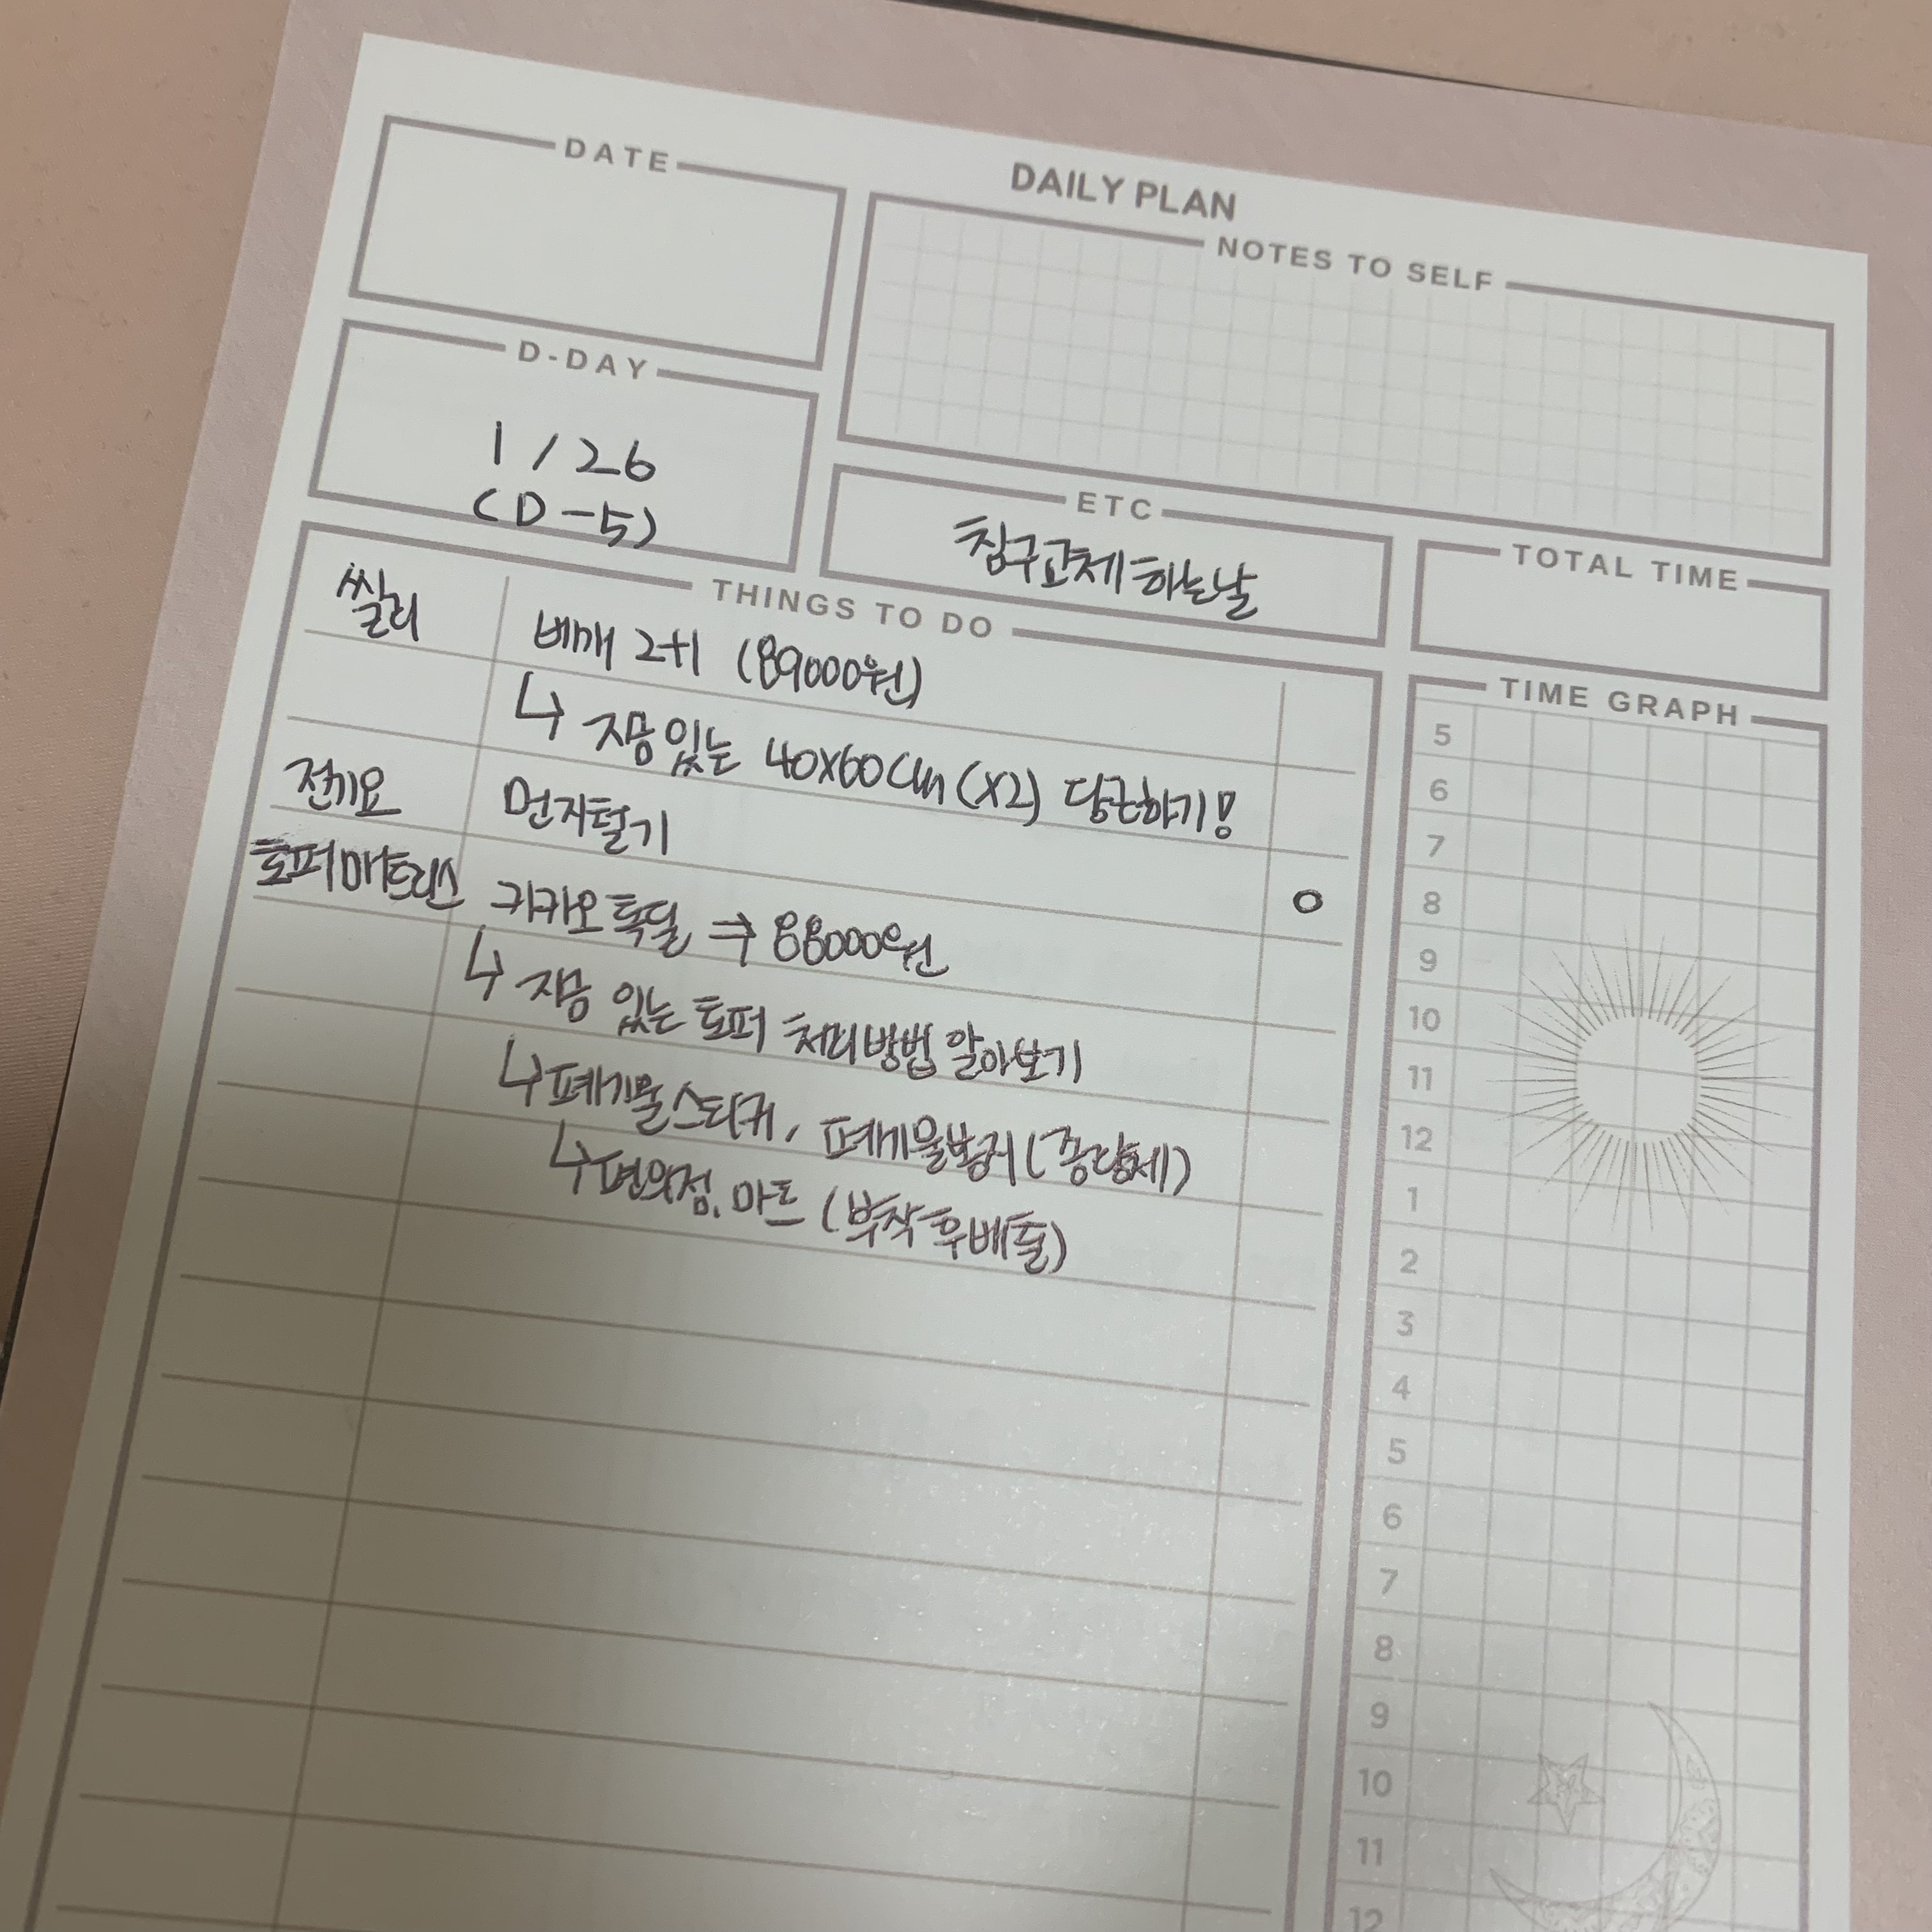 DAILY PLAN
DATE
NOTES TO SELF
D-DAY
1/26
(D-5)
ETC
침구교체하는날
TOTAL TIME
THINGS TO DO
씰리 베개 2+1 (89000원)
↳ 지금 있는 40x60cm (x2) 당근하기!
전기요 먼지털기 O
토퍼매트리스 카카오톡딜 ⇒ 88000원
↳ 지금 있는 토퍼 처리방법 알아보기
↳ 폐기물스티커, 폐기물봉지 (종량제)
↳ 편의점, 마트 (부착 후 배출)
TIME GRAPH
5
6
7
8
9
10
11
12
1
2
3
4
5
6
7
8
9
10
11
12